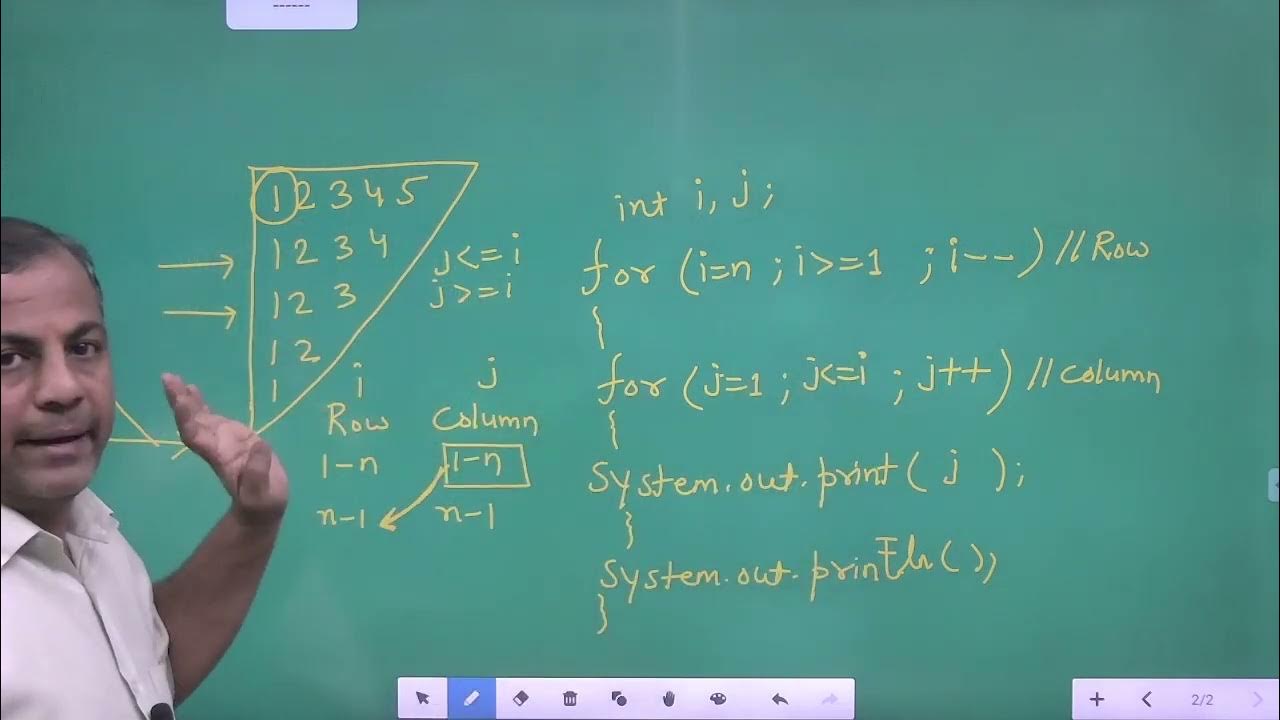 ------
1 2 3 4 5
1 2 3 4
1 2 3
1 2
1
j<=i
j>=i
i j
Row Column
1-n 1-n
n-1 n-1
int i, j;
for (i=n ; i>=1 ; i--) // Row
{
for (j=1 ; j<=i ; j++) // column
{
System.out.print( j );
}
System.out.println();
}
2/2